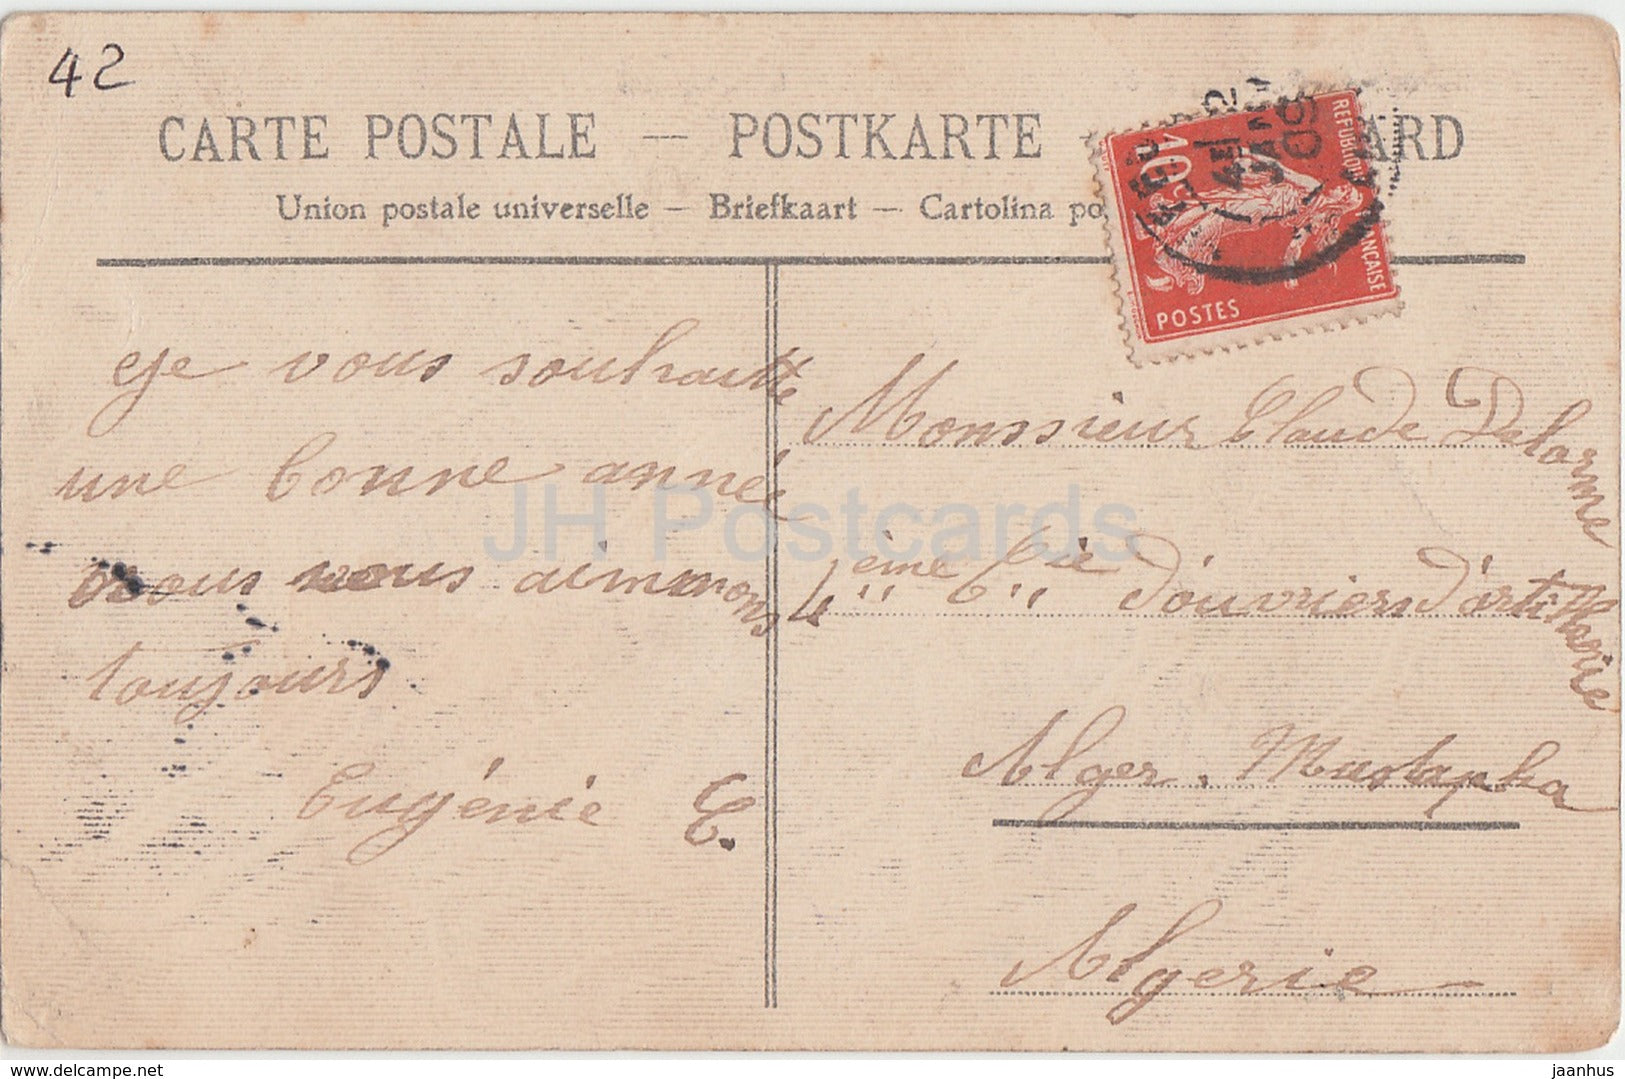 42
CARTE POSTALE — POSTKARTE ARD
Union postale universelle — Briefkaart — Cartolina po
REPUBLIQUE FRANÇAISE
10c
POSTES
4E
JANV
09
Je vous souhaitte
une bonne année
nous vous aimmrons
toujours
Eugénie C.
Monssieur Claude Delorme
4ème Cie d'ouvriers d'arti
llerie
Alger. Mustapha
Algerie
JH Postcards
delcampe.net
jaanhus